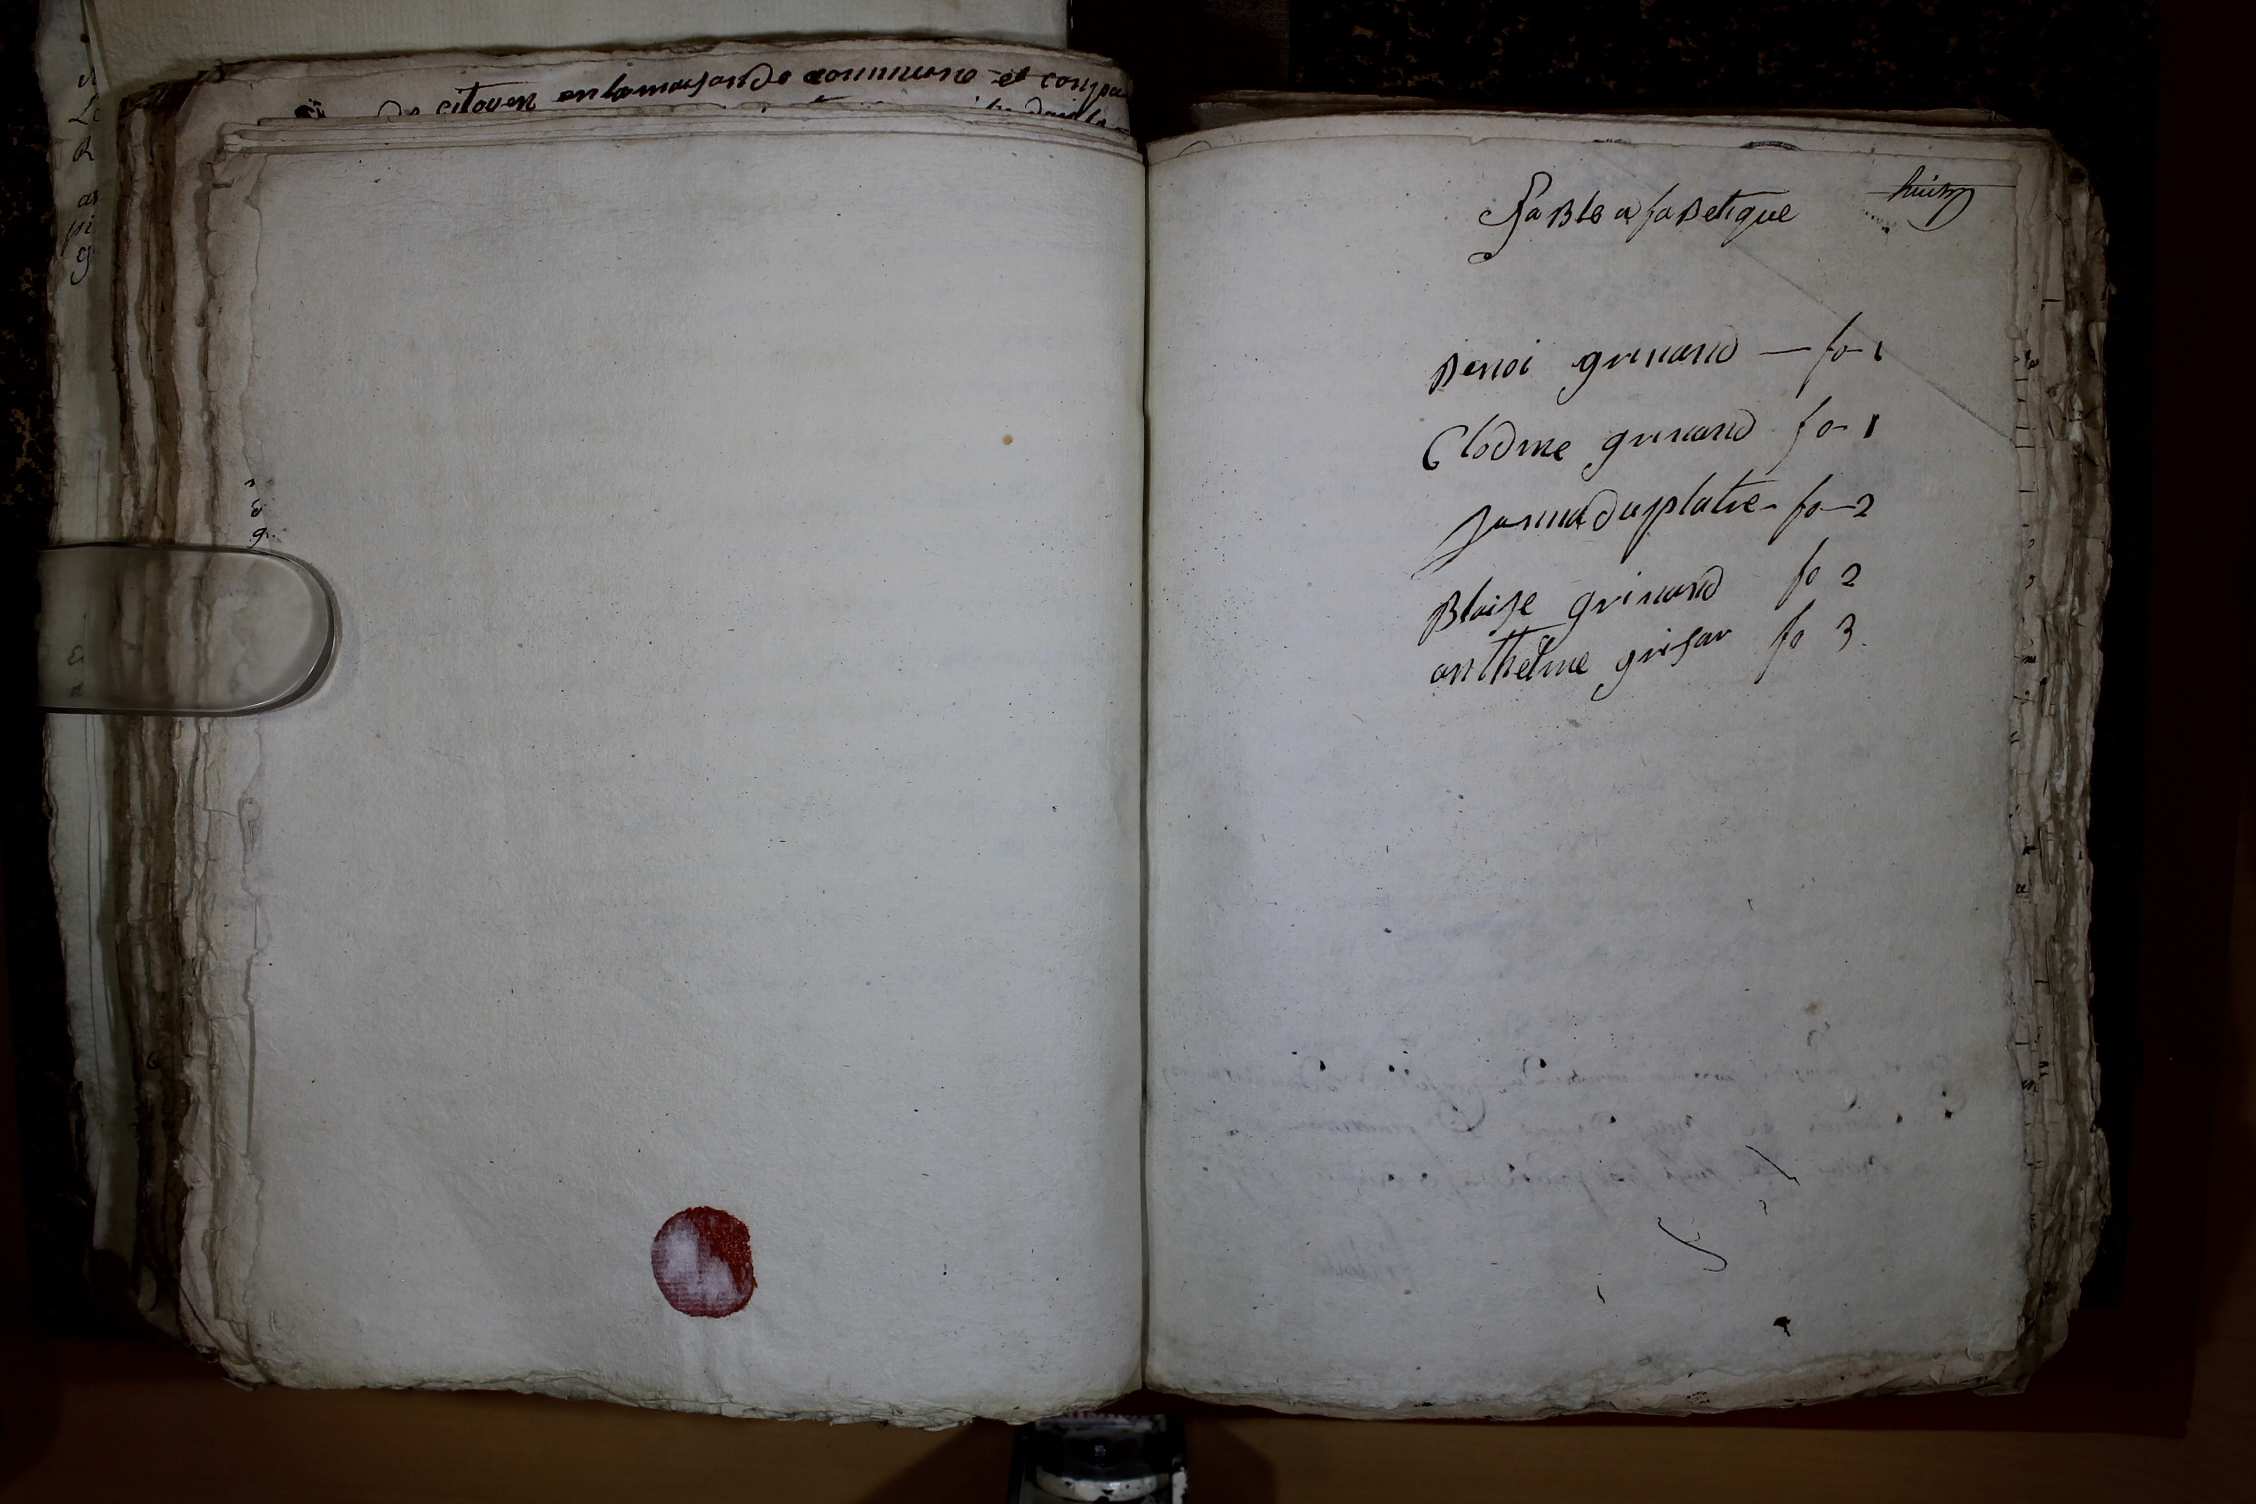 de citoyen en la maison de commune et compa
Table alfabetique
huit
Benoi grinand — fo 1
Clodine grinand fo 1
Janna duplatre fo 2
Blaise grinand fo 2
anthelme grisar fo 3.